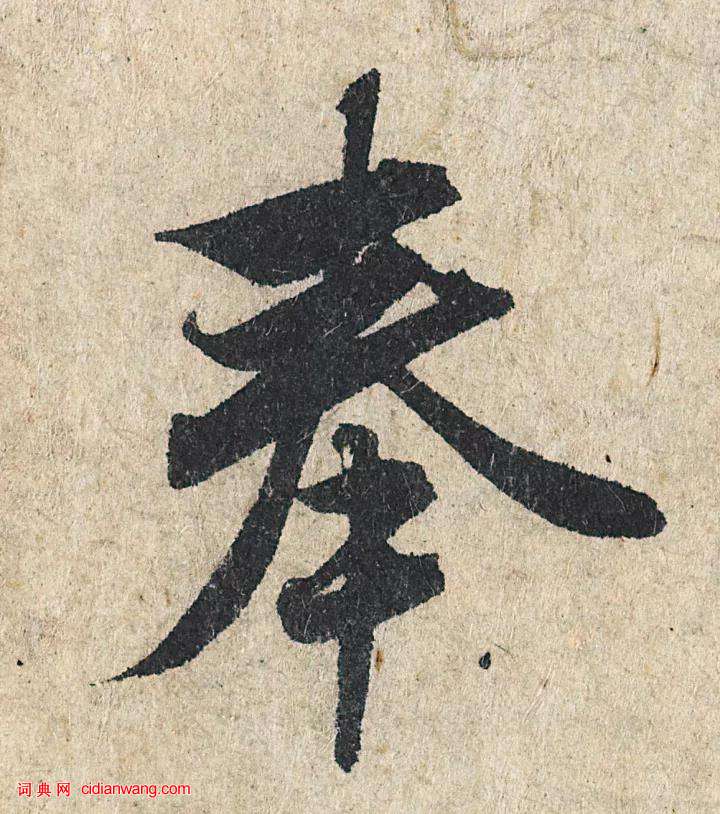 奉
词典网 cidianwang.com